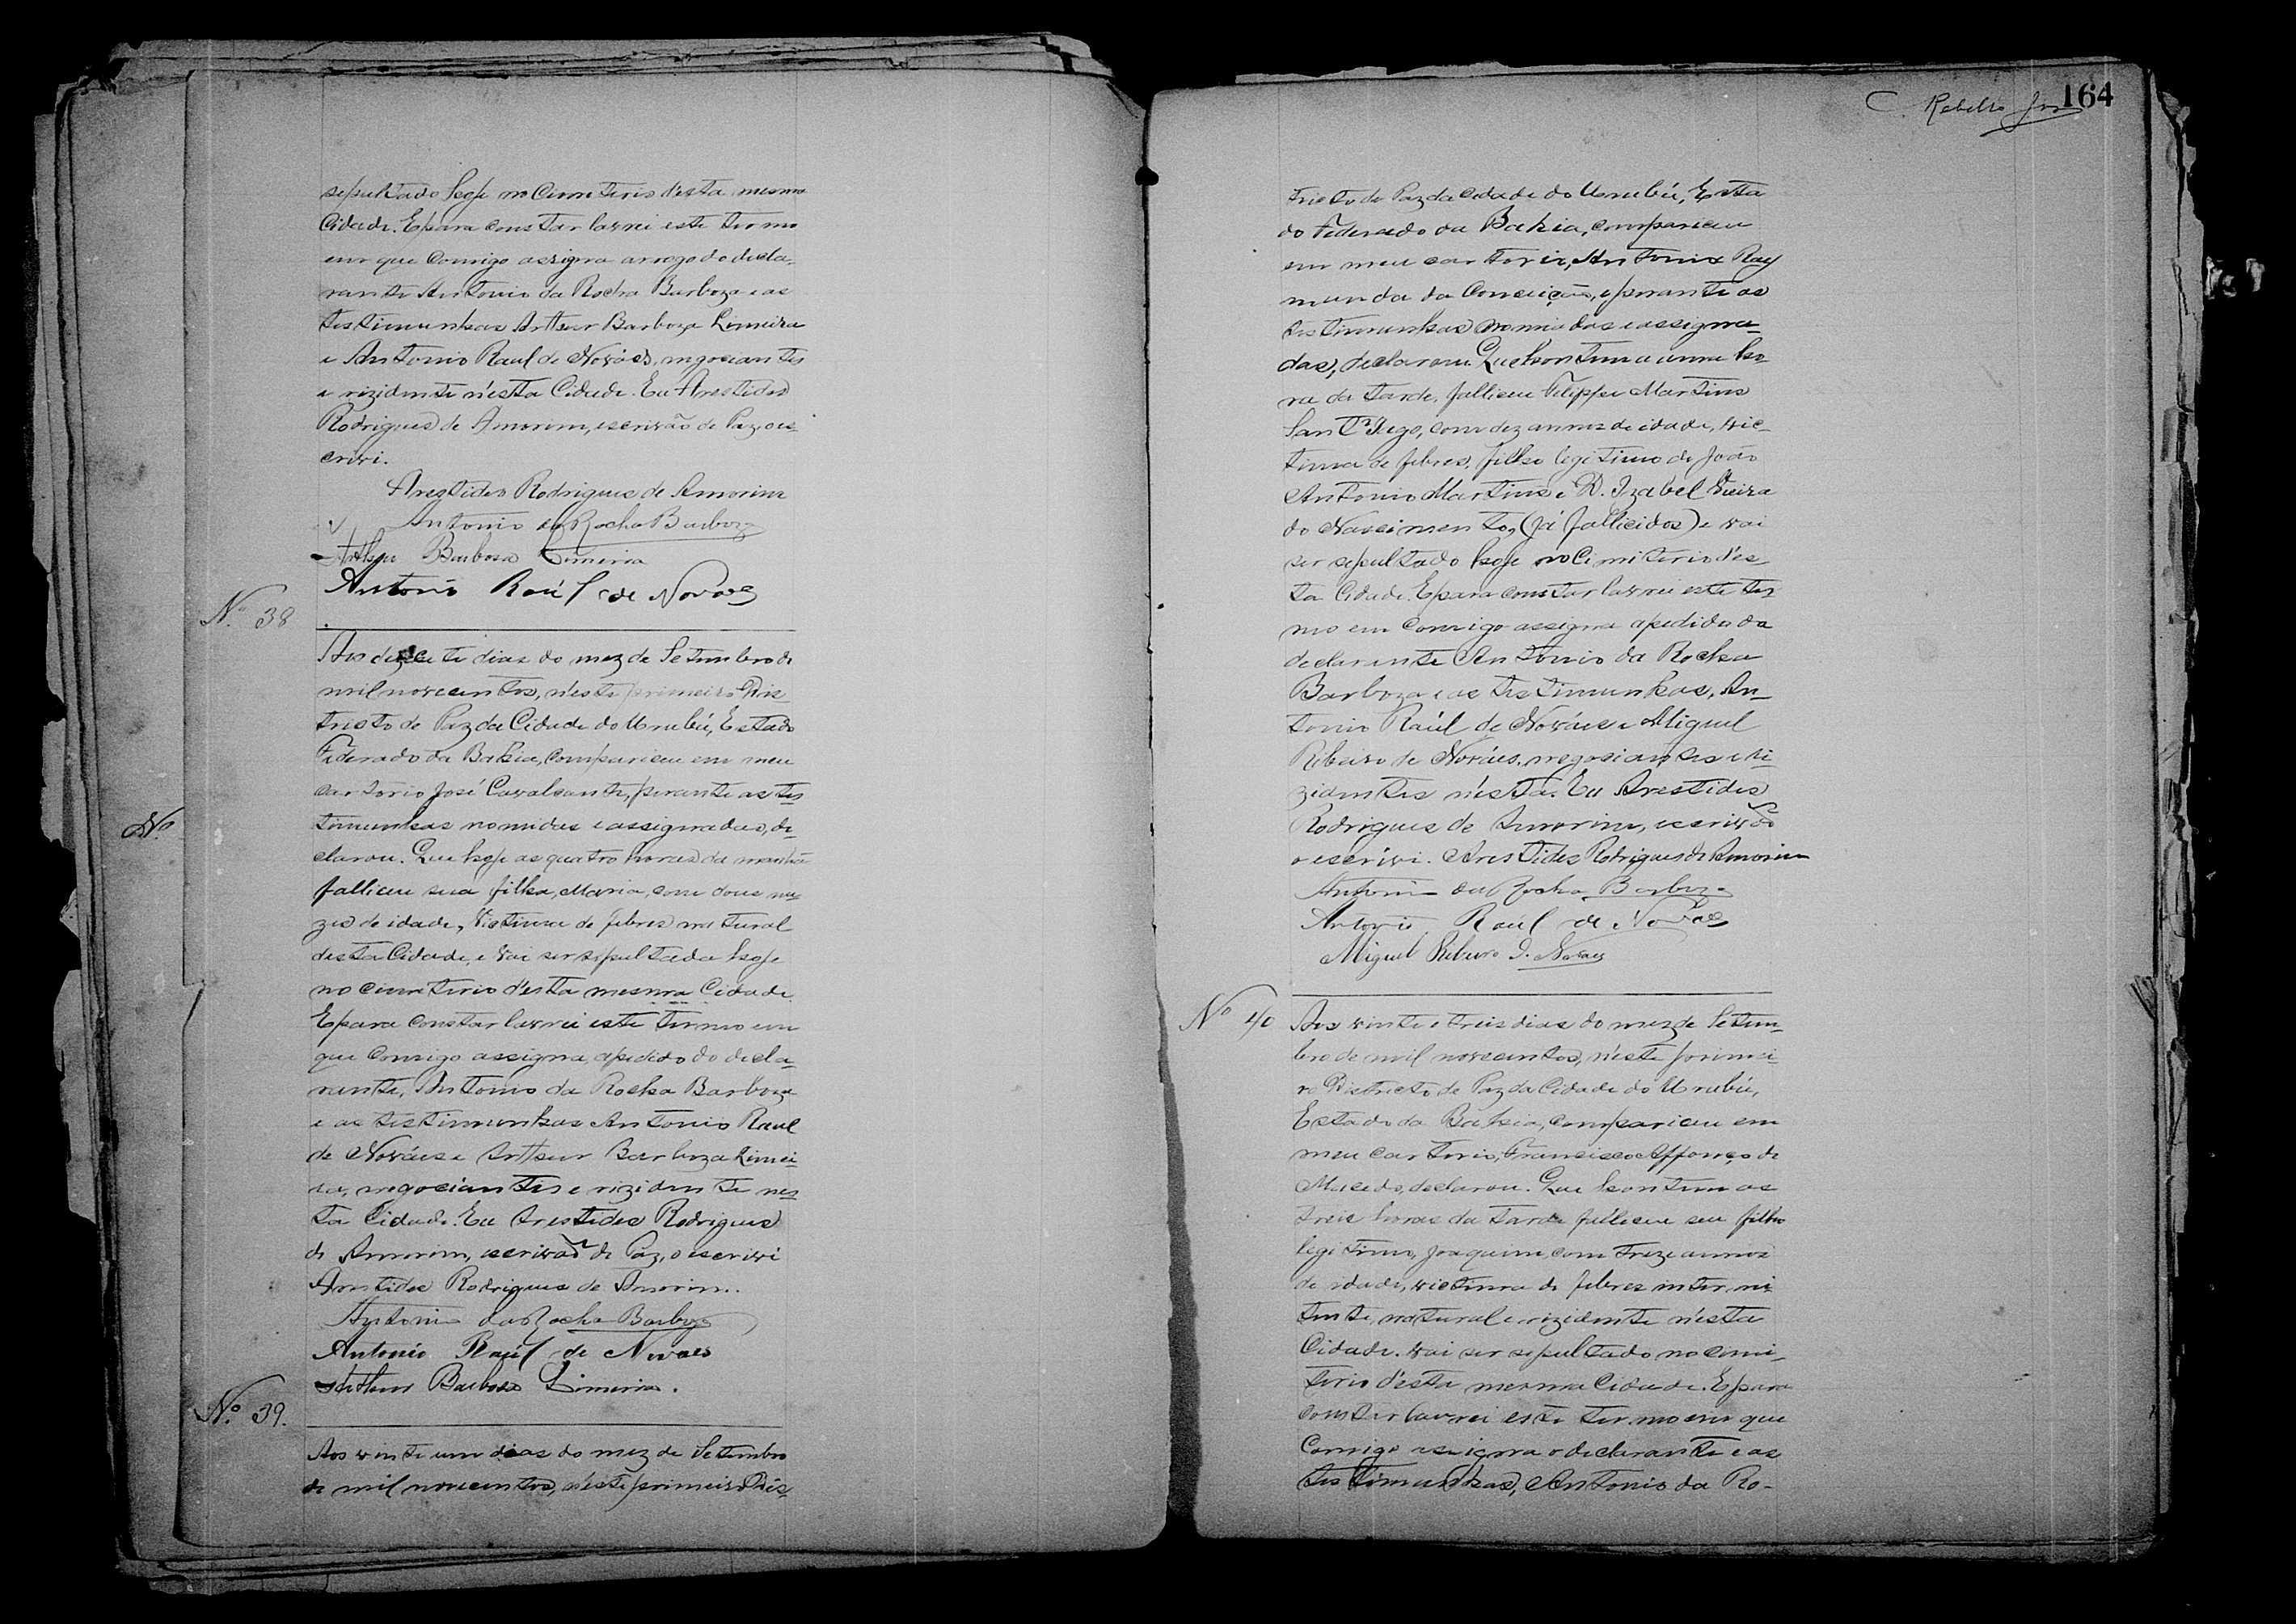 sepultado hoje no Cemiterio d'esta mesma
Cidade. E para constar lavrei este termo
em que comigo assigna a rogo do decla-
rante Antonio da Rocha Barboza e as
testimunhas Arthur Barboza Limeira
e Antonio Raul de Nováes, negociantes
e rizidente n'esta Cidade. Eu Arestides
Rodrigues de Amorim, escrivão de Paz, o es
crivi.
Arestides Rodrigues de Amorim
Antonio da Rocha Barboza
Arthur Barbosa Limeira
Antonio Raúl de Novaes
Nº 38
Aos dezecete dias do mez de Setembro de
mil novecentos, n'este primeiro Dis
tricto de Paz da Cidade do Urubú, Estado
Federado da Bahia, compareceu em meu
cartorio José Cavalcante, perante as tes
timunhas nomiadas e assignadas, de
clarou. Que hoje as quatro horas da manhã
falliceu sua filha, Maria, com dous me
zes de idade, victima de febres natural
desta Cidade, e vai ser sepultada hoje
no cemiterio d'esta mesma Cidade.
E para constar lavrei este termo em
que comigo assigna, apedido do decla-
rante, Antonio da Rocha Barboza
e as testimunhas Antonio Raul
de Nováes e Arthur Barboza Limei-
ra, negociantes e rizidente nes
ta Cidade. Eu Arestides Rodrigues
de Amorim, escrivão de Paz, o escrivi
Arestides Rodrigues de Amorim.
Antonio da Rocha Barboza
Antonio Raúl de Novaes
Arthur Barbosa Limeira.
Nº 39.
Aos vinte um dias do mez de Setembro
de mil novecentos, n'este primeiro Dis-
Nº
C. Rebello Jor 164
tricto de Paz da Cidade do Urubú, Esta
do Federado da Bahia, compareceu
em meu cartorio, Antonia Ray
munda da Conceição, e perante as
testimunhas nomiadas e assigna-
das, declarou. Que hontem a uma ho-
ra da tarde, falliceu Felippe Martins
Sant'Iago, com dez annos de idade, vic-
tima de febres, filho legitimo de João
Antonio Martins e D. Izabel Vieira
do Nascimento, (já fallicidos) e vai
ser sepultado hoje no Cimiterio d'es
ta Cidade. E para constar lavrei este ter
mo em comigo assigna apedido da
declarante Antonio da Rocha
Barboza e as testimunhas, An-
tonio Raúl de Nováes e Miguel
Ribeiro de Nováes, negociantes e ri-
zidentes n'esta. Eu Arestides
Rodrigues de Amorim, escrivão
o escrivi. Arestides Rodrigues de Amorim
Antonio da Rocha Barboza
Antonio Raúl de Novaes
Miguel Ribeiro d. Novaes
Nº 40
Aos vinte e treis dias do mez de Setem-
bro de mil novecentos, n'este primei-
ro Districto de Paz da Cidade do Urubú,
Estado da Bahia, compareceu em
meu cartorio, Francisco Affonço de
Macedo, declarou. Que hontem as
treis horas da tarde falliceu seu filho
legitimo, Joaquim, com treze annos
de idade, victima de febres intermi
tente, natural e rizidente n'esta
Cidade. vai ser sepultado no cemi-
terio d'esta mesma Cidade. E para
constar lavrei este termo em que
Comigo assigna o declarante e as
testimunhas, Antonio da Ro-